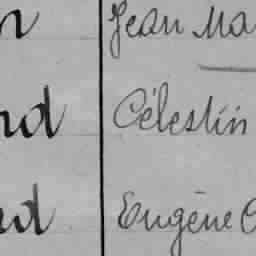 n Jean Ma
nd Célestin
nd Eugène C